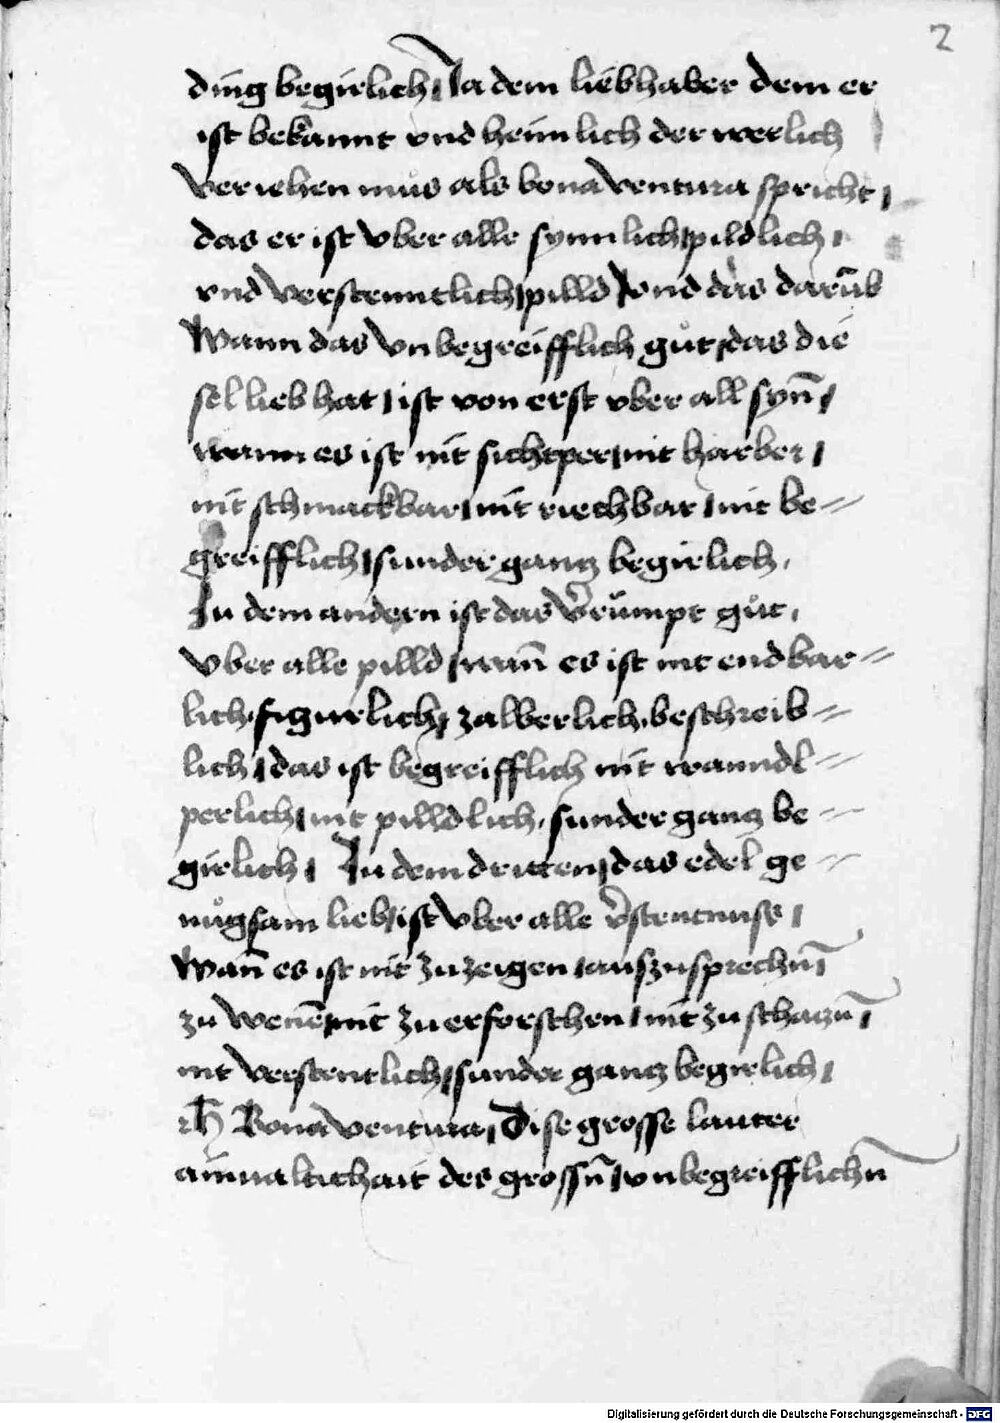 2
ding begirlich Ja dem liebhaber dem er
ist bekannt vnd heimlich der werlich
veriehen můs als bonaventura spricht
das er ist vber alle synnlich pildlich
vnd verstenntlich pilld vnd das darūb
Wann das vnbegreifflich gůt das die
sel lieb hat ist von erst vber all syn̄
wann es ist nit sichtper nit horber
nit schmackbar nit riechbar nit be=
greifflich sunder gantz begirlich
In dem andern ist das v̄rümpt gůt
vber alle pilld wan̄ es ist nit endbar=
lich figurlich zalberlich beschreib=
lich das ist begreifflich nit wanndl=
perlich nit pilldlich sunder gantz be=
girlich In dem dritten das edel ge=
nůgsam lieb ist vber alle v̄stentnuss
Wan̄ es ist nit zu zeigen auszusprechn̄
zu wenē nit zu erforschen nit zu schatzn̄
nit verstentlich sunder gantz begirlich
Bonaventura Dise grosse lauter
ainualtichait des grossn̄ vnbegreifflichn̄
Digitalisierung gefördert durch die Deutsche Forschungsgemeinschaft - DFG